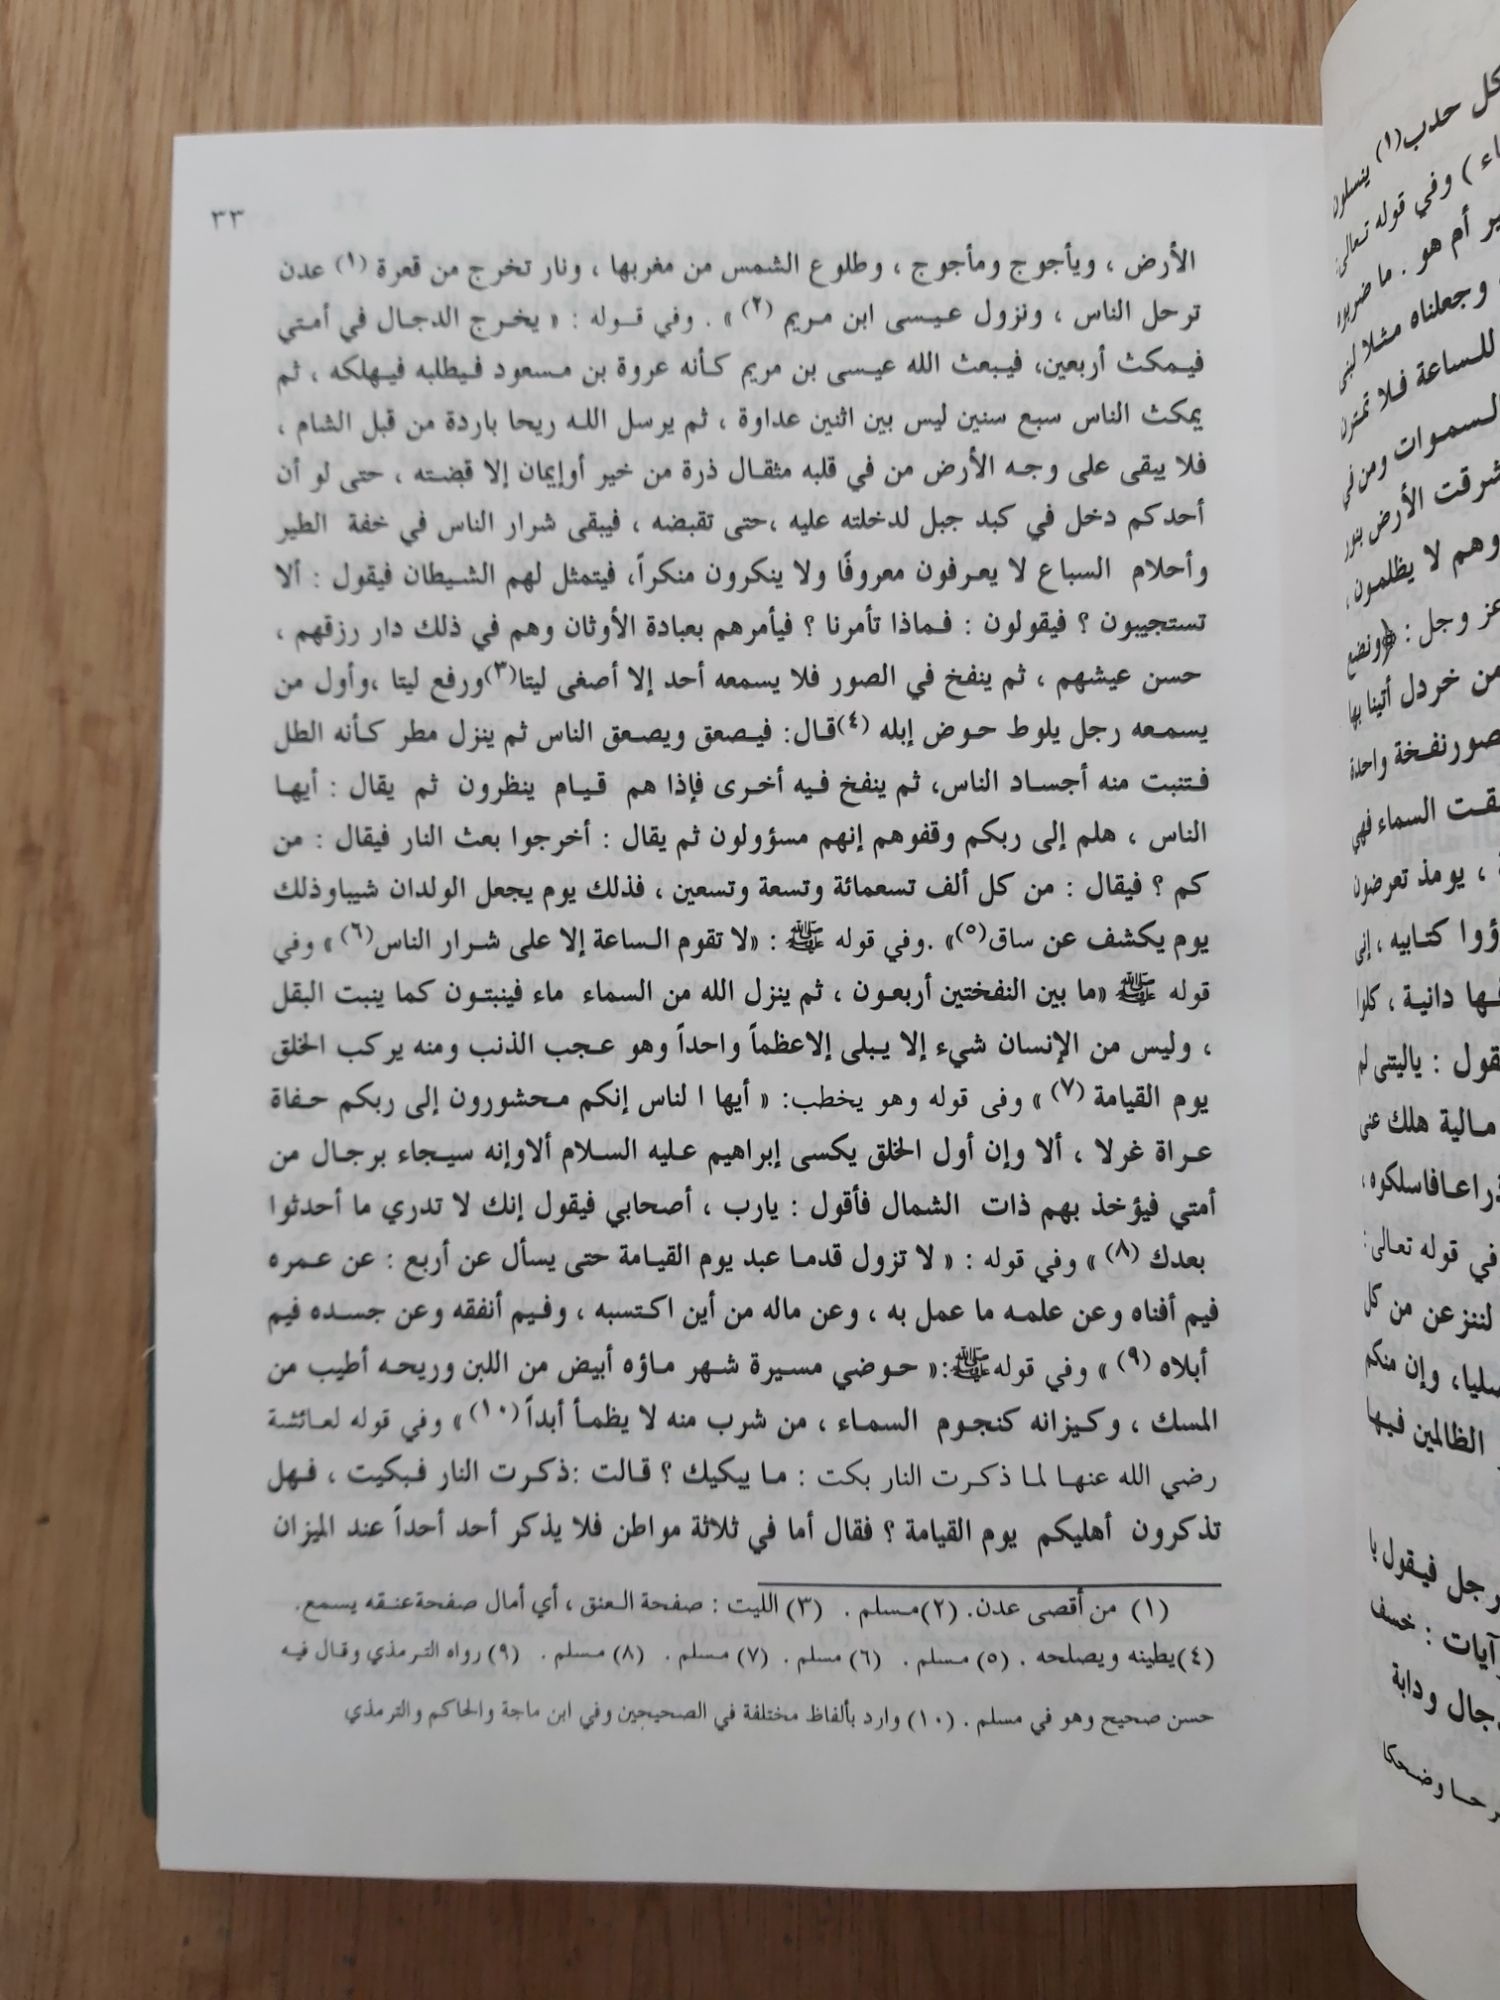 ٣٣
الأرض ، ويأجوج ومأجوج ، وطلوع الشمس من مغربها ، ونار تخرج من قعرة (١) عدن
ترحل الناس ، ونزول عيسى ابن مريم (٢) » . وفي قوله : « يخرج الدجال في أمتي
فيمكث أربعين، فيبعث الله عيسى بن مريم كأنه عروة بن مسعود فيطلبه فيهلكه ، ثم
يمكث الناس سبع سنين ليس بين اثنين عداوة ، ثم يرسل الله ريحا باردة من قبل الشام ،
فلا يبقى على وجه الأرض من في قلبه مثقال ذرة من خير أوإيمان إلا قبضته ، حتى لو أن
أحدكم دخل في كبد جبل لدخلته عليه ،حتى تقبضه ، فيبقى شرار الناس في خفة الطير
وأحلام السباع لا يعرفون معروفًا ولا ينكرون منكراً، فيتمثل لهم الشيطان فيقول : ألا
تستجيبون ؟ فيقولون : فماذا تأمرنا ؟ فيأمرهم بعبادة الأوثان وهم في ذلك دار رزقهم ،
حسن عيشهم ، ثم ينفخ في الصور فلا يسمعه أحد إلا أصغى ليتا(٣)ورفع ليتا ،وأول من
يسمعه رجل يلوط حوض إبله (٤)قال: فيصعق ويصعق الناس ثم ينزل مطر كأنه الطل
فتنبت منه أجساد الناس، ثم ينفخ فيه أخرى فإذا هم قيام ينظرون ثم يقال : أيها
الناس ، هلم إلى ربكم وقفوهم إنهم مسؤولون ثم يقال : أخرجوا بعث النار فيقال : من
كم ؟ فيقال : من كل ألف تسعمائة وتسعة وتسعين ، فذلك يوم يجعل الولدان شيباوذلك
يوم يكشف عن ساق(٥)» .وفي قوله ﷺ : «لا تقوم الساعة إلا على شرار الناس(٦) » وفي
قوله ﷺ «ما بين النفختين أربعون ، ثم ينزل الله من السماء ماء فينبتون كما ينبت البقل
، وليس من الإنسان شيء إلا يبلى إلاعظماً واحداً وهو عجب الذنب ومنه يركب الخلق
يوم القيامة (٧) » وفى قوله وهو يخطب: « أيها ا لناس إنكم محشورون إلى ربكم حفاة
عراة غرلا ، ألا وإن أول الخلق يكسى إبراهيم عليه السلام ألاوإنه سيجاء برجال من
أمتي فيؤخذ بهم ذات الشمال فأقول : يارب ، أصحابي فيقول إنك لا تدري ما أحدثوا
بعدك (٨) » وفي قوله : « لا تزول قدما عبد يوم القيامة حتى يسأل عن أربع : عن عمره
فيم أفناه وعن علمه ما عمل به ، وعن ماله من أين اكتسبه ، وفيم أنفقه وعن جسده فيم
أبلاه (٩) » وفي قوله ﷺ:« حوضي مسيرة شهر ماؤه أبيض من اللبن وريحه أطيب من
المسك ، وكيزانه كنجوم السماء ، من شرب منه لا يظمأ أبداً (١٠) » وفي قوله لعائشة
رضي الله عنها لما ذكرت النار بكت : ما يبكيك ؟ قالت :ذكرت النار فبكيت ، فهل
تذكرون أهليكم يوم القيامة ؟ فقال أما في ثلاثة مواطن فلا يذكر أحد أحداً عند الميزان
(١) من أقصى عدن. (٢)مسلم . (٣) الليت : صفحة العنق ، أي أمال صفحةعنقه يسمع.
(٤)يطينه ويصلحه . (٥) مسلم . (٦) مسلم . (٧) مسلم . (٨) مسلم . (٩) رواه الترمذي وقال فيه
حسن صحيح وهو في مسلم . (١٠) وارد بألفاظ مختلفة في الصحيحين وفي ابن ماجة والحاكم والترمذي
كل حدب(١) ينسلون
وفي قوله تعالى:
أم هو . ما ضربوه
وجعلناه مثلا لبنى
للساعة فلا تمترن
السموات ومن في
الأرض بنور
وهم لا يظلمون ،
عز وجل : ﴿ونضع
من خردل أتينا بها
نفخة واحدة
السماء فهي
، يومذ تعرضون
كتابيه ، إنى
دانية ، كلوا
ياليتنى لم
مالية هلك عنى
فاسلكوه ،
في قوله تعالى :
لننزعن من كل
وإن منكم
الظالمين فيها
فيقول يا
آيات : خسف
ودابة
وضحكا